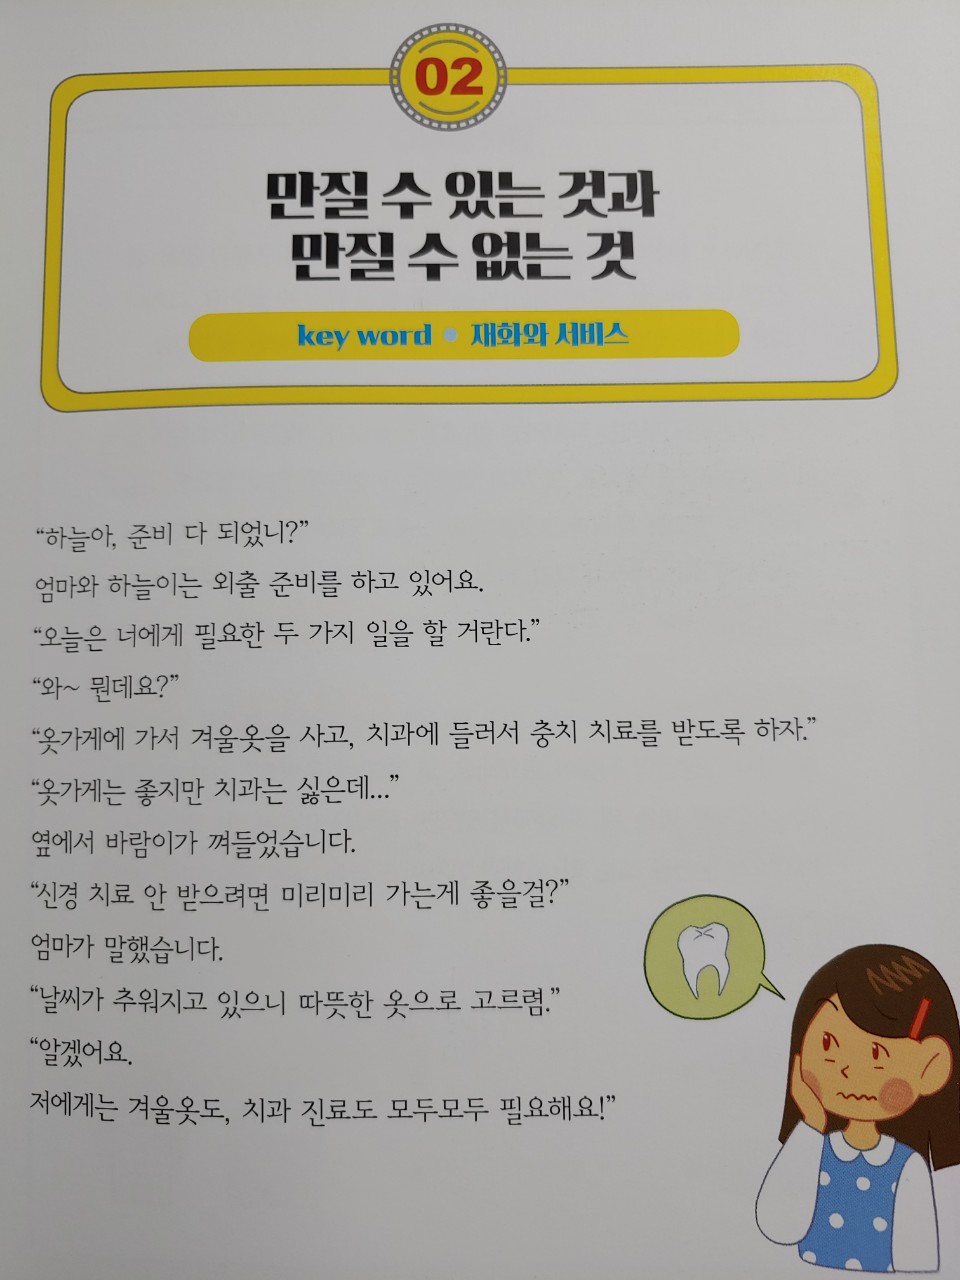 02
만질 수 있는 것과
만질 수 없는 것
key word ● 재화와 서비스
“하늘아, 준비 다 되었니?”
엄마와 하늘이는 외출 준비를 하고 있어요.
“오늘은 너에게 필요한 두 가지 일을 할 거란다.”
“와~ 뭔데요?”
“옷가게에 가서 겨울옷을 사고, 치과에 들러서 충치 치료를 받도록 하자.”
“옷가게는 좋지만 치과는 싫은데...”
옆에서 바람이가 껴들었습니다.
“신경 치료 안 받으려면 미리미리 가는게 좋을걸?”
엄마가 말했습니다.
“날씨가 추워지고 있으니 따뜻한 옷으로 고르렴.”
“알겠어요.
저에게는 겨울옷도, 치과 진료도 모두모두 필요해요!”